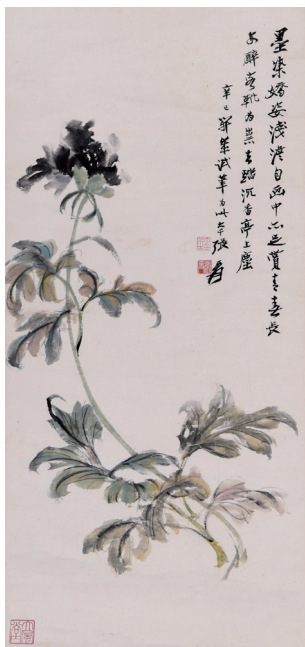 墨染嬌姿淺澹匀画中亦足賞青春長
安醉客靴為祟去踏沉香亭上塵
辛巳試筆為此大千張
爰